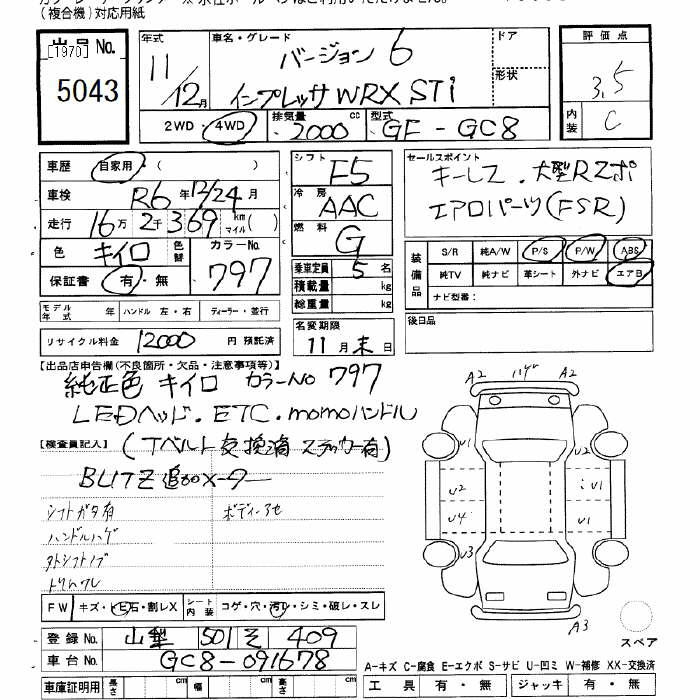 (複合機)対応用紙
出品No.
[1970]
5043
年式 11/12月
車名・グレード バージョン6
インプレッサWRX STi
ドア
形状
評価点 3.5
内装 C
2WD・4WD 排気量 2000 cc 型式 GF-GC8
車歴 自家用・( )
車検 R6年12/24月
走行 16万2千369 km マイル( )
色 キイロ 色替 カラーNo. 797
保証書 有・無
シフト F5
冷房 AAC
燃料 G
乗車定員 5名
積載量 kg
総重量 kg
セールスポイント
キーレス・大型Rスポ
エアロパーツ(FSR)
装備品 S/R 純A/W P/S P/W ABS
純TV 純ナビ 革シート 外ナビ エアB
ナビ型番:
モデル年式 年 ハンドル 左・右 ディーラー・並行
リサイクル料金 12000 円 預託済
名変期限
11月末日
後日品
【出品店申告欄(不良箇所・欠品・注意事項等)】
純正色 キイロ カラーNo 797
LEDヘッド・ETC・momoハンドル
【検査員記入】 (Tベルト交換済 ステッカー有)
BLITZ追加メーター
シフトガタ有 ボディーアセ
ハンドルハゲ
外シフトノブ
トリムワレ
FW キズ・トビ石・割レX シート内装 コゲ・穴・汚レ・シミ・破レ・スレ
A2 ハゲ A2
U1 U2
U2 U1
U4 U1
U3 U2
A3
スペア
登録No. 山梨 501 そ 409
車台No. GC8-091678
A-キズ C-腐食 E-エクボ S-サビ U-凹ミ W-補修 XX-交換済
車庫証明用 長さ cm 幅 cm 高さ cm
工具 有・無 ジャッキ 有・無